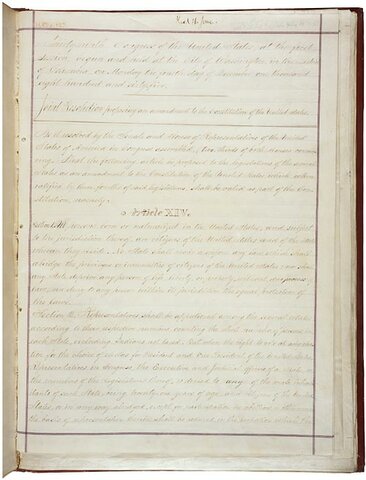 Thirty-ninth Congress of the United States, at the first
Session, begun and held at the City of Washington, in the District
of Columbia, on Monday the fourth day of December one thousand
eight hundred and sixty-five
Joint Resolution proposing an amendment to the Constitution of the United States.
Be it resolved by the Senate and House of Representatives of the United
States of America in Congress assembled, two thirds of both Houses concur-
ring, That the following article be proposed to the legislatures of the several
States as an amendment to the Constitution of the United States, which, when
ratified by three fourths of said legislatures shall be valid as part of the Con-
stitution, namely:
Article XIV.
persons born or naturalized in the United States, and subject
to the jurisdiction thereof, are citizens of the United States and of the State
wherein they reside. No State shall make or enforce any law which shall
abridge the privileges or immunities of citizens of the United States; nor shall
any State deprive any person of life, liberty, or property, without due process of
law; nor deny to any person within its jurisdiction the equal protection of
the laws.
Section 2. Representatives shall be apportioned among the several States
according to their respective numbers, counting the whole number of persons in
each State, excluding Indians not taxed. But when the right to vote at any elec-
tion for the choice of electors for President and Vice President of the United States,
Representatives in Congress, the Executive and Judicial officers of a State, or
the members of the Legislature thereof, is denied to any of the male inhabi-
tants of such State, being twenty-one years of age, and citizens of the United
States, or in any way abridged, except for participation in rebellion, or other crime,
the basis of representation therein shall be reduced in the proportion which the